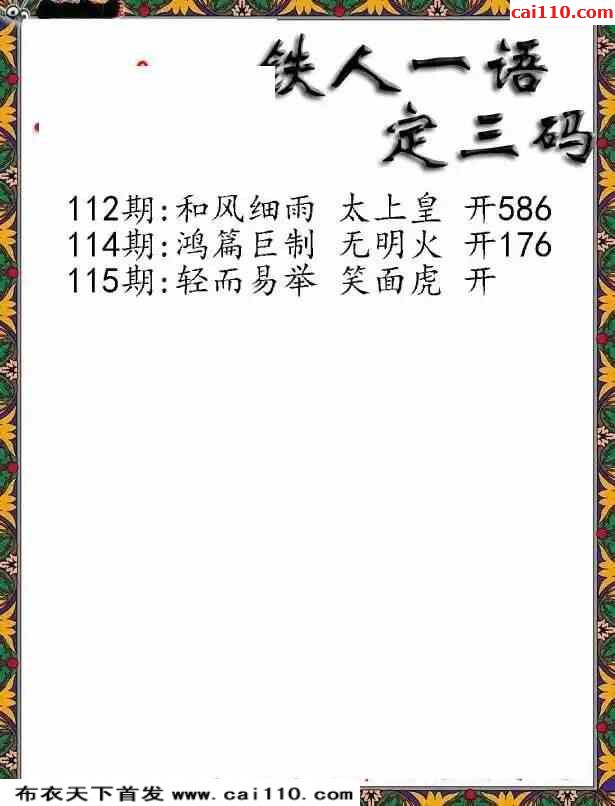 cai110.com
铁人一语
定三码
112期:和风细雨 太上皇 开586
114期:鸿篇巨制 无明火 开176
115期:轻而易举 笑面虎 开
布衣天下首发 www.cai110.com